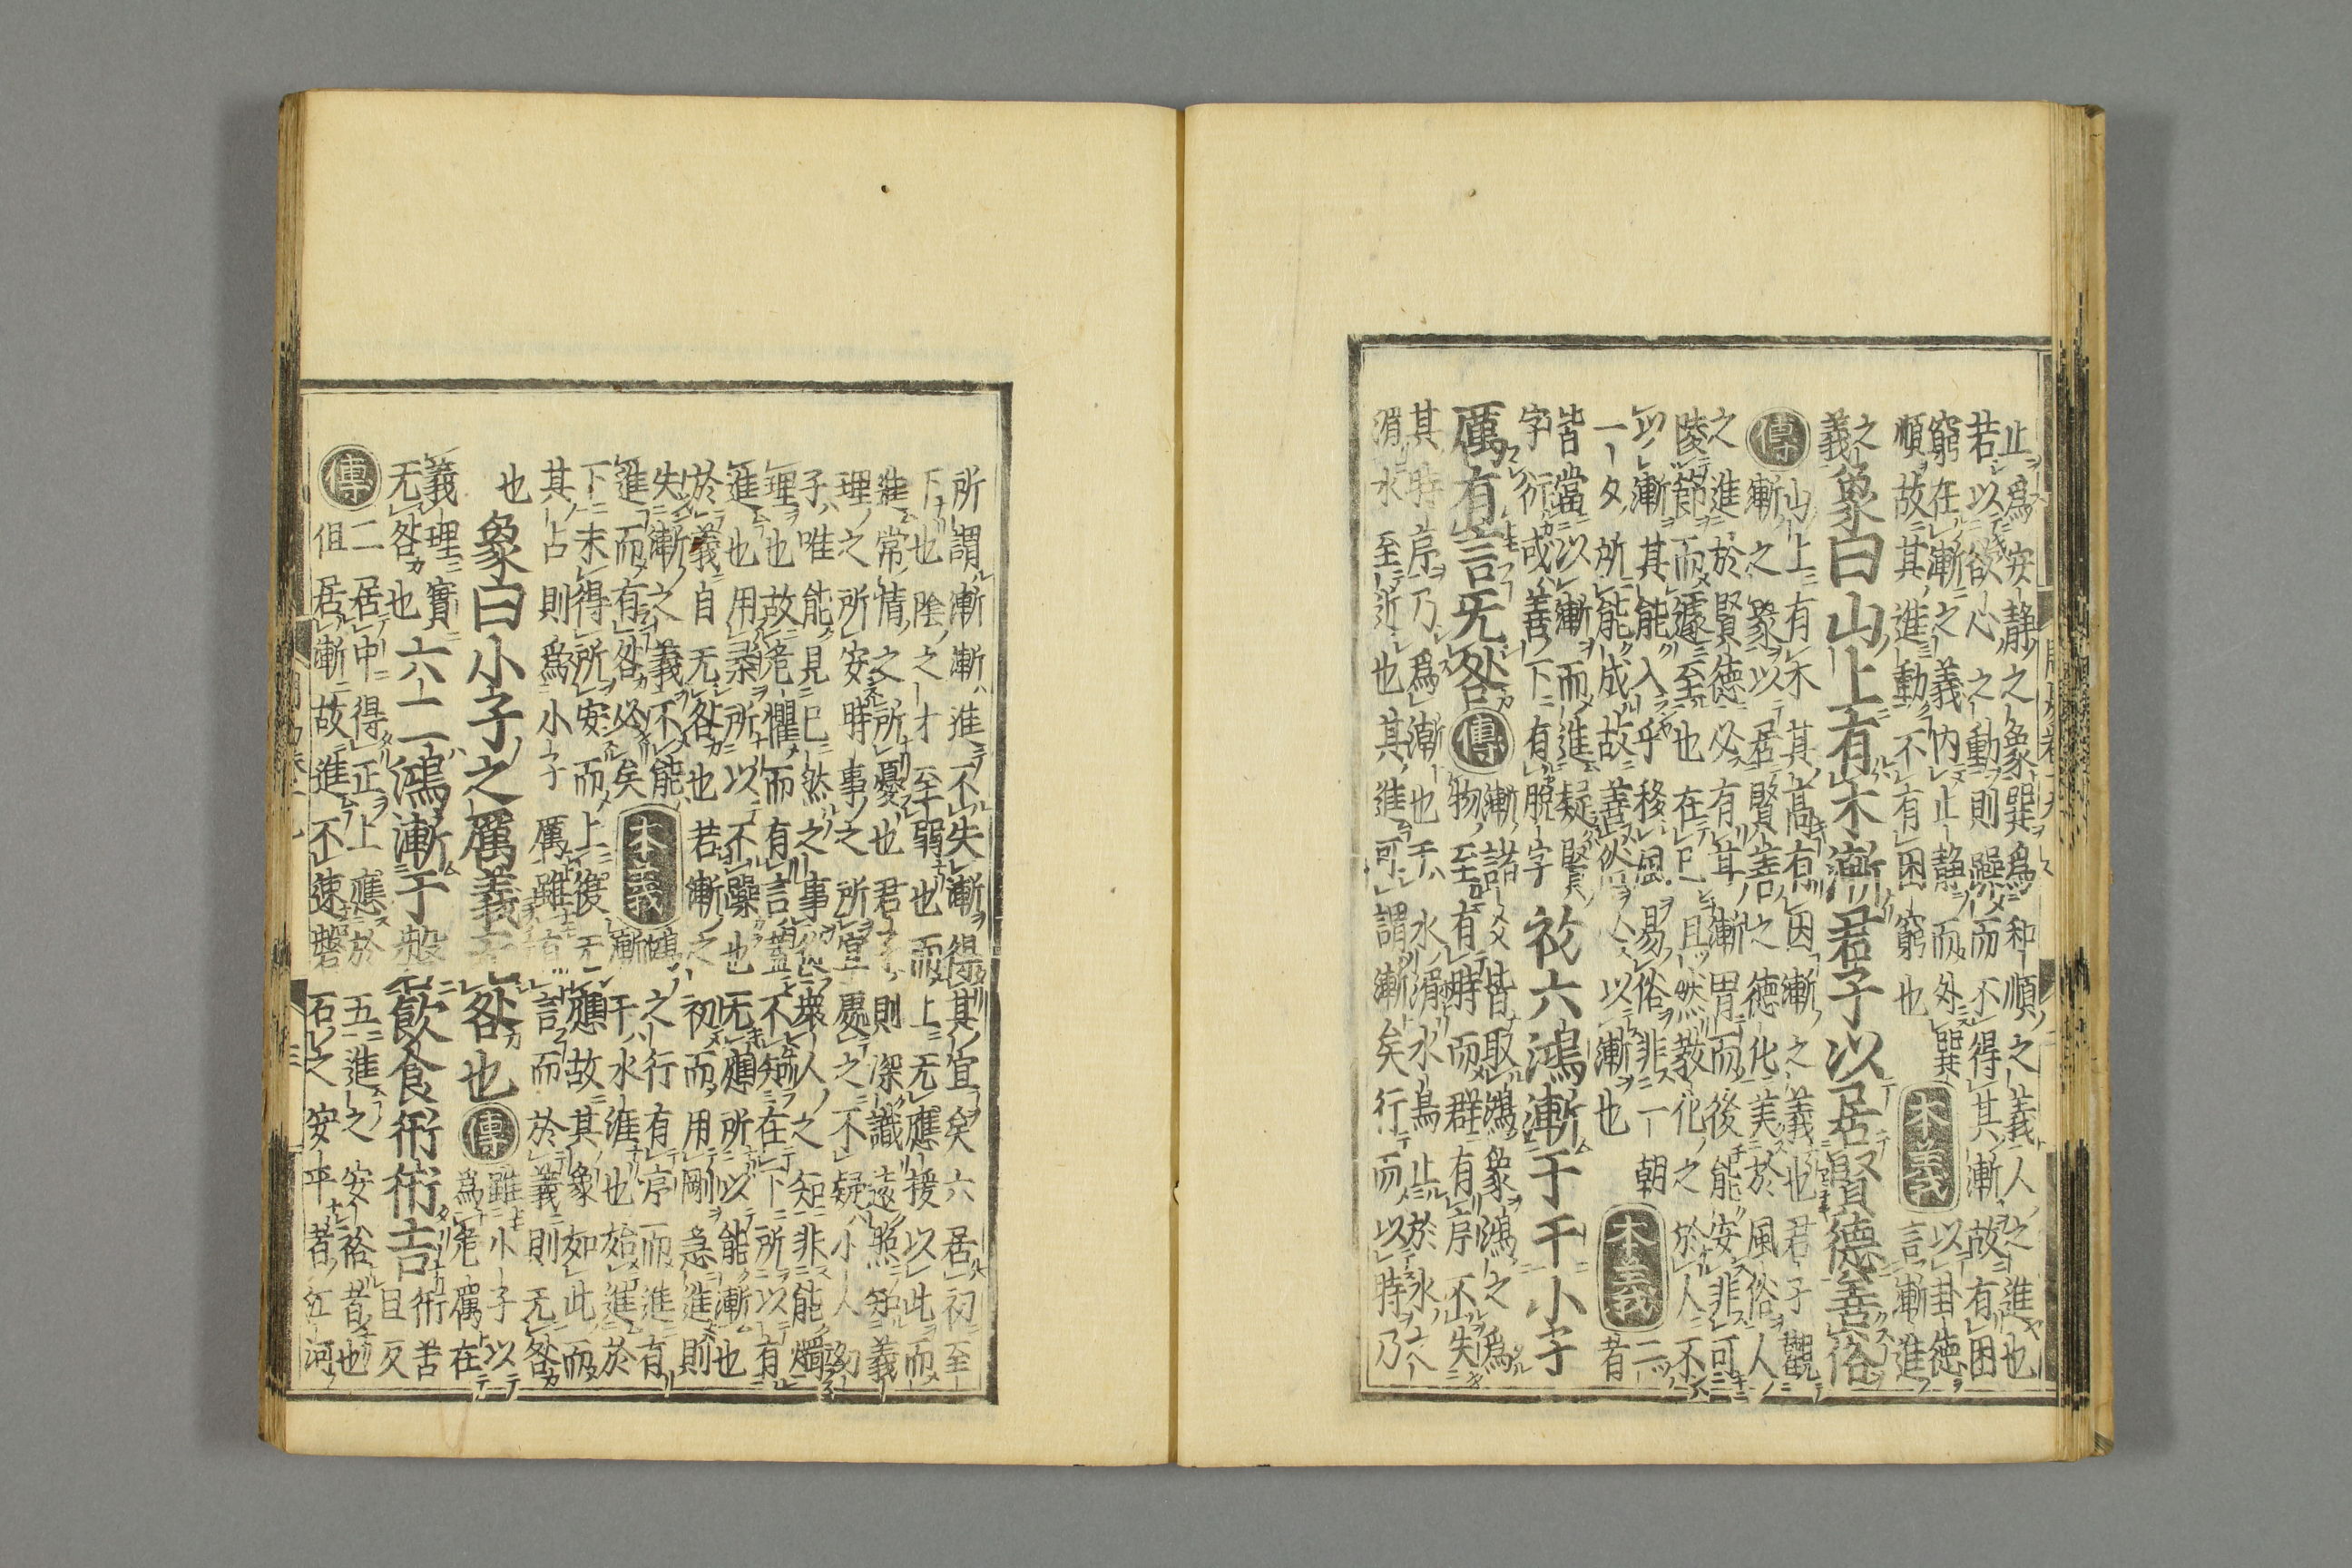 止爲安靜之象巽爲和順之義人之進也
若以欲心之動則躁而不得其漸故有困
窮在漸之義內止靜而外巽
順故其進動不有困窮也
本義
以卦德
言漸進
之
義
象曰山上有木漸君子以居賢德善俗
傳
山上有木其高有因漸之義也君子觀
漸之象以居賢善之德化美於風俗人
之進於賢德必有其漸習而後能安非可
陵節而遽至也在己且然教化之於人不
以漸其能入乎移風易俗非一朝
一夕所能成故善俗必以漸也
本義
二
者
皆當以漸而進疑賢
字衍或善下有脫字
初六鴻漸于干小子
厲有言无咎
傳
漸諸爻皆取鴻象鴻之爲
物至有時而群有序不失
其時序乃爲漸也干水湄水鳥止於水之
湄水至近也其進可謂漸矣行而以時乃
所謂漸漸進不失漸得其宜矣六居初至
下也陰之才至弱也而上无應援以此而
進常情之所憂也君子則深識遠照知義
理之所安時事之所宜處之不疑小人幼
子唯能見已然之事從衆人之知非能燭
理也故危懼而有言蓋不知在下所以有
進也用柔所以不躁也无應所以能漸也
於義自无咎也若漸之初而用剛急進則
失漸之義不能
進而有咎必矣
本義
鴻之行有序而進有
漸干水涯也始進於
下未得所安而上復无應故其象如此而
其占則爲小子厲雖有言而於義則无咎
也
象曰小子之厲義无咎也
傳
雖小子以
爲危厲在
義理實
无咎也
六二鴻漸于磐飮食衎衎吉
衎苦
旦反
傳
二居中得正上應於五進之安裕者也
但居漸故進不速磐石之安平者江河